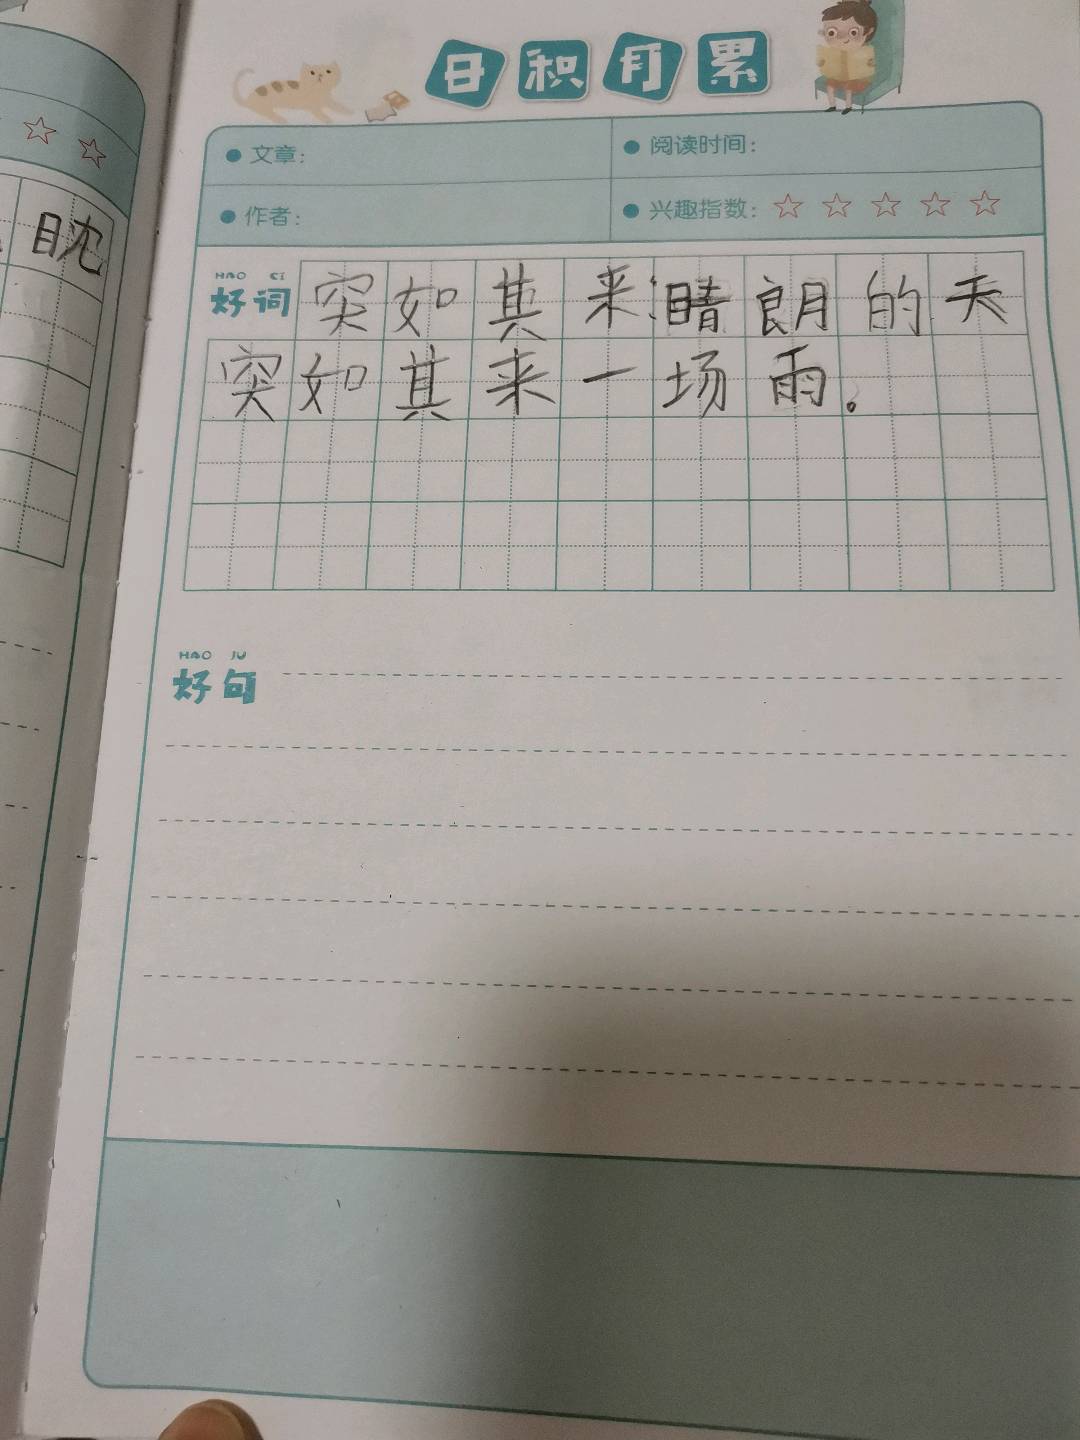 日积月累
文章： 阅读时间：
作者： 兴趣指数：
眈
HAO CI
好词 突如其来：睛朗的天
突如其来一场雨。
HAO JU
好句